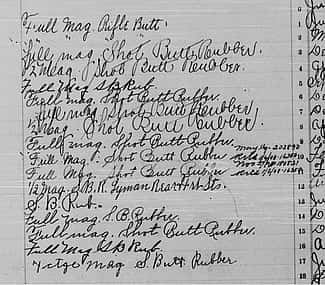 Full Mag Rifle Butt.
full mag. Shot Butt Rubber.
1/2 mag. Shot Butt Rubber.
Full Mag S.B. Rub.
Full mag. Shot Butt Rubber.
full mag. Shot Butt Rubber
1/2 mag. Shot Butt Rubber.
Full mag. Shot Butt Rubber.
Full Mag. Shot Butt Rubber
Full Mag. Shot Butt Rubber
1/2 Mag. S.B.R. Lyman Rear & Sts.
S.B. Rub.
Full mag S.B. Rubber.
Full mag. Shot Butt Rubber.
Full Mag S.B. Rub.
mag S. Butt Rubber
0
2
3
4
5
6
7
8
9
10
12
13
14
15
16
17
18